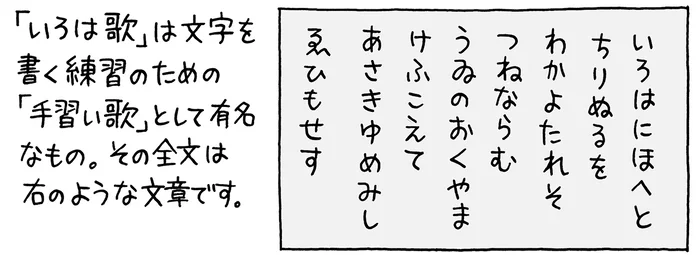 「いろは歌」は文字を
書く練習のための
「手習い歌」として有名
なもの。その全文は
右のような文章です。
いろはにほへと
ちりぬるを
わかよたれそ
つねならむ
うゐのおくやま
けふこえて
あさきゆめみし
ゑひもせす